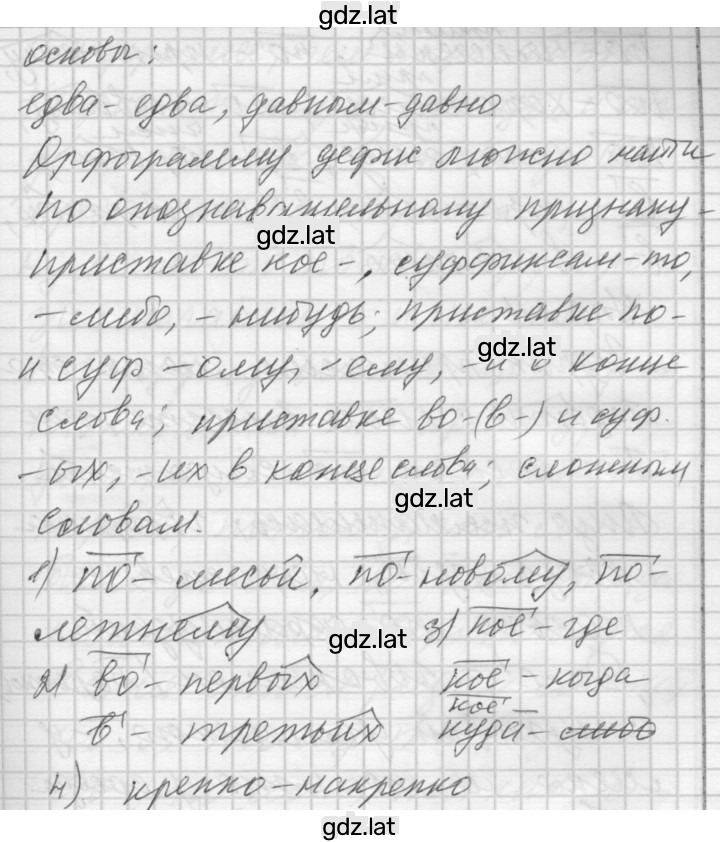 gdz.lat
основы:
едва-едва, давным-давно
Орфограмму дефис можно найти
по опознавательному признаку -
gdz.lat
приставке кое-, суффиксам -то,
-либо, -нибудь; приставке по-
gdz.lat
и суф -ому, -ему, -и в конце
слова; приставке во-(в-) и суф.
-ых, -их в конце слова; сложным
gdz.lat
словам.
1) по-лисьи, по-новому, по-
летнему 3) кое-где
gdz.lat
2) во-первых кое-когда
кое-
в-третьих куда-либо
4) крепко-накрепко
gdz.lat